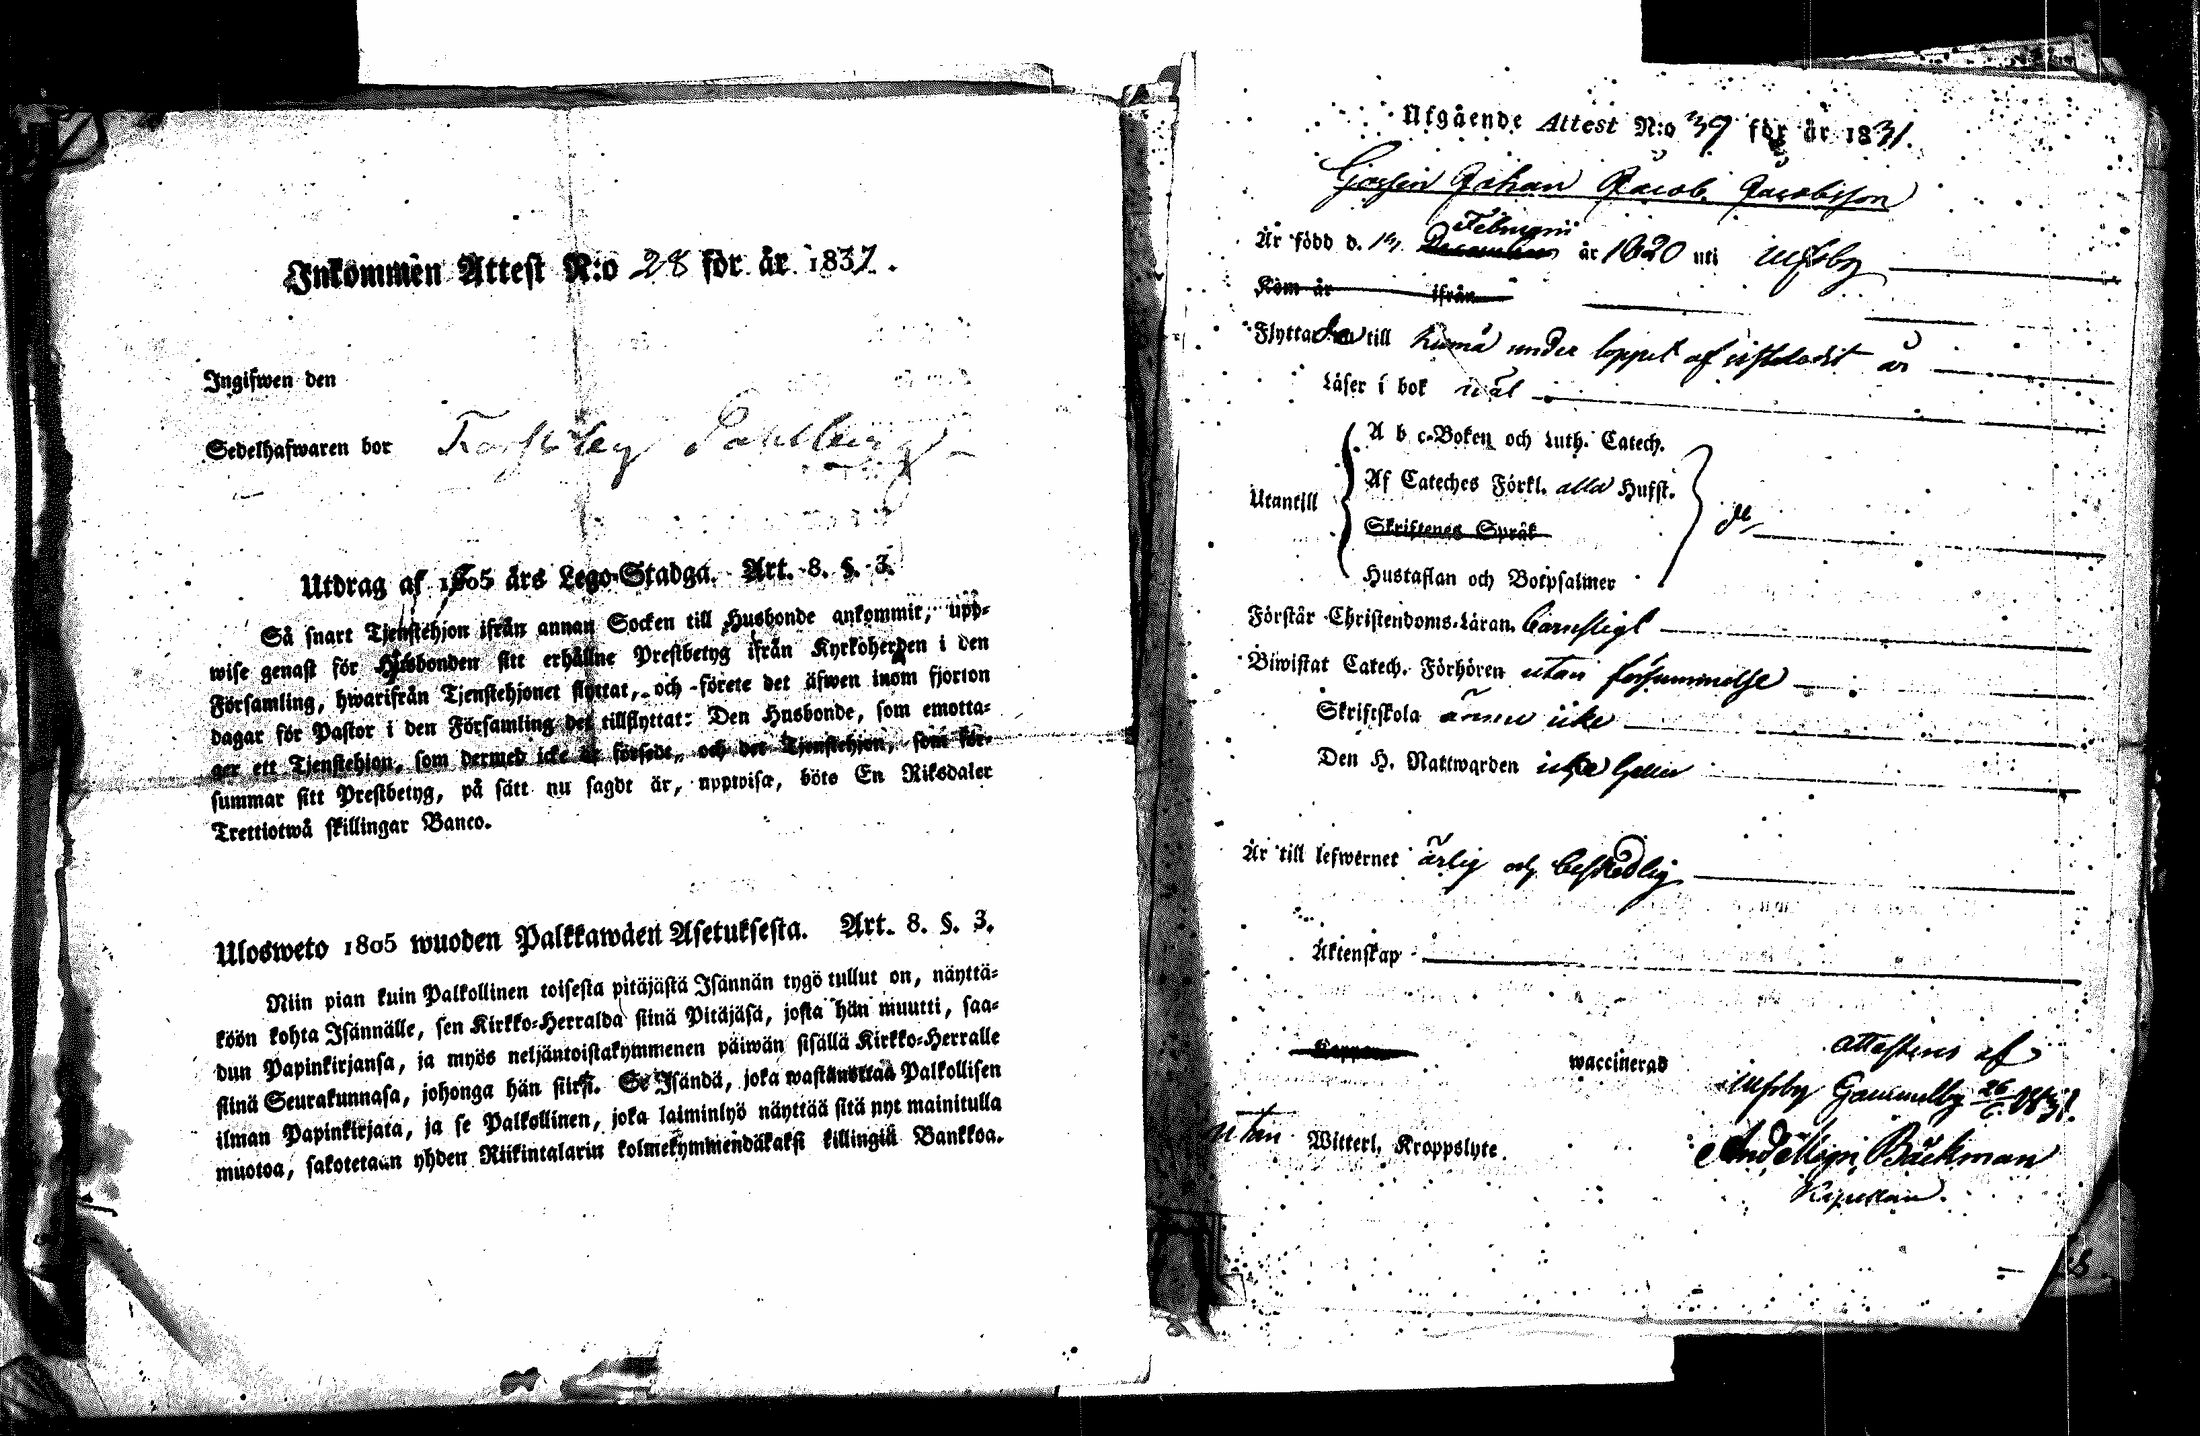 Inkommen Attest N:o 28 för år 1831.
Ingifwen den
Sedelhafwaren bor
Utdrag af 1805 års Lego-Stadga. Art. 8. §. 3.
Så snart Tjenstehjon ifrån annan Socken till Husbonde ankommit, upp-
wise genast för Husbonden sitt erhållne Prestbetyg ifrån Kyrkoherden i den
Församling, hwarifrån Tjenstehjonet flyttat, och förete det äfwen inom fjorton
dagar för Pastor i den Församling det tillflyttat: Den Husbonde, som emotta-
ger ett Tjenstehjon, som dermed icke är försedt, och det Tjenstehjon, som för-
summar sitt Prestbetyg, på sätt nu sagdt är, uppwisa, böte En Riksdaler
Trettiotwå skillingar Banco.
Ulosweto 1805 wuoden Palkkawäen Asetuksesta. Art. 8. §. 3.
Niin pian kuin Palkollinen toisesta pitäjästä Isännän tygö tullut on, näyttä-
köön kohta Isännälle, sen Kirkko-Herralda siinä Pitäjäsä, josta hän muutti, saa-
dun Papinkirjansa, ja myös neljäntoistakymmenen päiwän sisällä Kirkko-Herralle
siinä Seurakunnasa, johonga hän siirsi. Se Isändä, joka wastanottaa Palkollisen
ilman Papinkirjata, ja se Palkollinen, joka laiminlyö näyttää sitä nyt mainitulla
muotoa, sakotetaan yhden Riikintalarin kolmekymmendäkaksi killingiä Bankkoa.
Utgående Attest N:o 39 för år 1831.
Gossen Johan Jacob Jacobsson
Februarii
Är född d. December år 1820 uti Ulfsby
Kom år ifrån
Flyttar till Kumå under loppet af sistledit år
Läser i bok wäl
A b c-Boken och Luth. Catech.
Af Cateches Förkl. alla Hufst.
Utantill
Skriftenes Språk
Hustaflan och Botpsalmer
Förstår Christendoms-Läran barnsligt
Biwistat Catech. Förhören utan försummelse
Skriftskola ännu icke
Den H. Nattwarden icke heller
Är till lefwernet ärlig och beskedlig
Äktenskap
Koppor waccinerad
attesteras af
Ulfsby Gammelby 26/6 1831.
utan Witterl. Kroppslyte.
And. Mich. Bäckman
Kapellan.